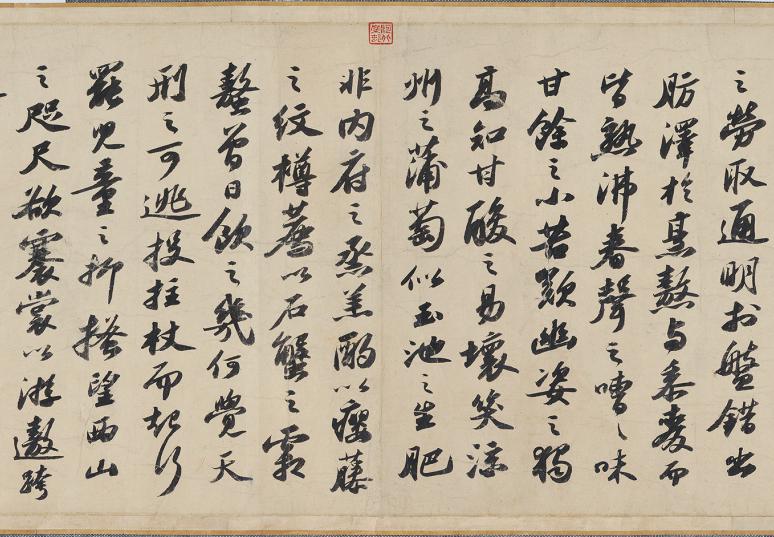 之勞取通明於盤錯出
肪澤於烹熬与黍麥而
皆熟沸舂聲之嘈〻味
甘餘之小苦歎幽姿之獨
高知甘酸之易壞笑涼
州之蒲萄似玉池之生肥
非內府之蒸羔酌以癭藤
之紋樽薦以石蟹之霜
螯曾日飲之幾何覺天
刑之可逃投拄杖而起行
罷兒童之抑搔望西山
之咫尺欲褰裳以游遨跨